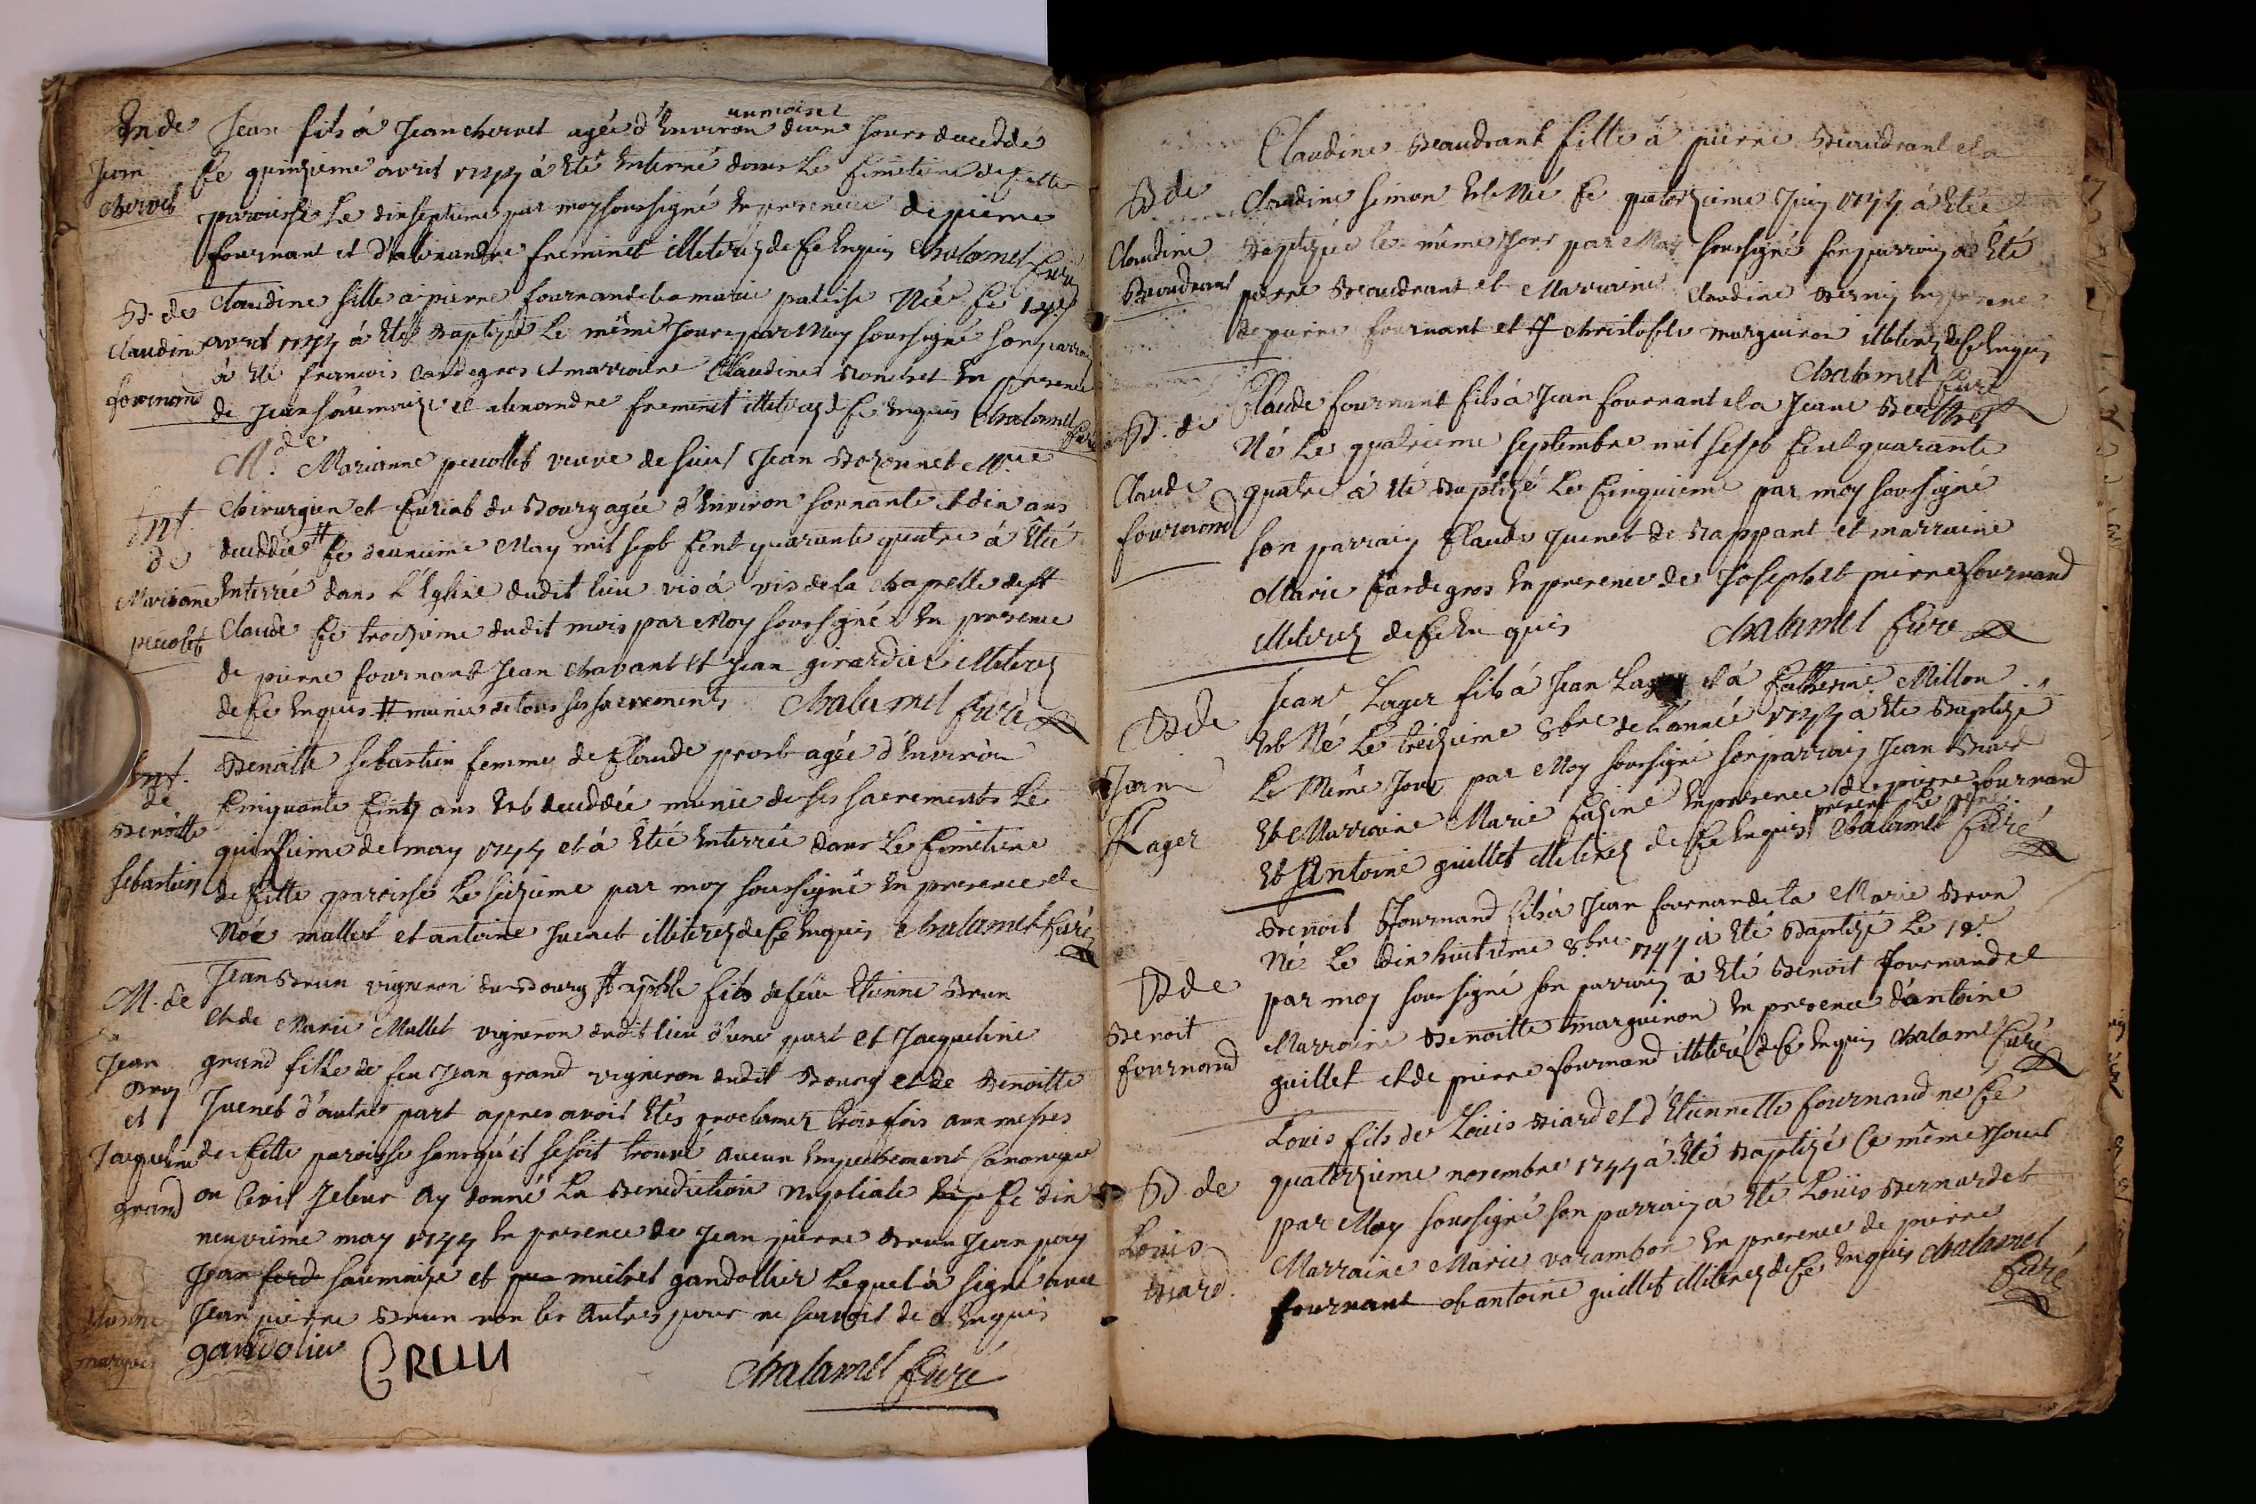 En de
Jean
chervet
Jean fils à Jean chervet agée d'Environ un mois et deux jours deceddé
Le quinzieme avril 1744 à Eté Enterré dans Le Cimetiere de Cette
paroisse Le dixseptieme par moy soussigné En presence de pierre
fournant et d'alexandre freminet illeterez de Ce Enquis Chalamel Curé
B. de
Claudine
fournand
Claudine fille à pierre fournant et la marie Née Ce
avril 1744 à Eté Baptizé Le même Jour par Moy soussigné son parrain
à Eté francois Cardegros et marraine Claudine En presence
de Jean saumaize et alexandre freminet illeterez de Ce Enquis Chalamel
Curé
Ent.
de
Marianne
pecollet
M.de Marianne pecollet veuve de sieur Jean M.tre
Chirurgien et Curial du Bourg agée d'Environ soixante et dix ans
deceddée # Ce deuxieme May mil sept Cent quarante quatre à Eté
Enterrée dans L'Eglise dudit lieu vis à vis de la Chapelle de St
Claude Ce troizieme dudit mois par Moy soussigné En presence
de pierre fournant Jean Chavant et Jean girardier illeterez
de Ce Enquis # munie de tous ses sacrements Chalamel Curé
Ent.
de
Benoitte
sebastien
Benoitte sebastien femme de Claude prost agée d'Environ
Cinquante Cinq ans Est deceddée munie de ses sacrements Le
quinzieme de may 1744 et à Eté Enterrée dans Le Cimetiere
de Cette paroisse Le seizieme par moy soussigné En presence de
Noé mallet et antoine Juenet illeterez de Ce Enquis Chalamel Curé
M. de
Jean
Brun
et
Jacqueline
grand
Jean Brun vigneron du Bourg fils de feu Etienne Brun
et de Marie Mallet vigneron dudit lieu d'une part et Jacqueline
grand fille de feu Jean grand vigneron dudit Bourg et de Benoitte
Juenet d'autre part apres avoir Etés proclamez trois fois aux messes
de Cette paroisse sans qu'il se soit trouvé aucun Empechement Canonique
ou Civil Je leur ay donné La Benediction Nuptiale Ce dix
neuvieme may 1744 En presence de Jean pierre Brun Jean
Jean saumaize et michel gandollier Lequel à signé avec
Jean pierre Brun non les autres pour ne scavoir de Ce Enquis
gandolier Brun
Chalamel Curé
B de
Claudine
Beaudrant
Claudine Beaudrant fille à pierre Beaudrant et a
Claudine simon Est Née Ce quatorzieme Juin 1744 à Eté
Baptizée le même Jour par Moy soussigné son parrain a Eté
pierre Beaudrant et Marraine Claudine Bernin En presence
de pierre fournant et christofle marguiron illeterez de Ce Enquis
Chalamel Curé
B. de
Claude
fournand
Claude fournant fils à Jean fournant et a Jeane
Né Le quatrieme septembre mil sept Cent quarante
quatre à Eté Baptizé Le Cinquieme par moy soussigné
son parrain Claude Juenet de Rappant et marraine
Marie Cardegros En presence de Joseph et pierre fournand
illeterez de Ce Enquis Chalamel Curé
B de
Jean
Lager
Jean Lager fils à Jean Lager et à Catherine Millon
Est Né Le treizieme 8bre de l'année 1744 à Eté Baptizé
Le Même Jour par Moy soussigné son parrain Jean Biard
Et Marraine Marie En presence de pierre fournand
Et Antoine guillet illeterez de Ce Enquis present Le pere Chalamel Curé
B de
Benoit
fournand
Benoit fournand fils à Jean fournand et a Marie Brun
Né Le dix huitieme 8bre 1744 à Eté Baptizé Le 19.e
par moy soussigné son parrain à Eté Benoit fournand et
Marraine Benoitte marguiron En presence d'antoine
guillet et de pierre fournand illeteré de Ce Enquis Chalamel Curé
B de
Louis
Biard
Louis fils de Louis Biard et d'Etiennette fournand né Ce
quatorzieme novembre 1744 à Eté Baptizé Ce même Jour
par Moy soussigné son parrain à Eté Louis Bernardet
Marraine Marie varambon En presence de pierre
fournant et antoine guillet illeterez de Ce Enquis Chalamel
Curé